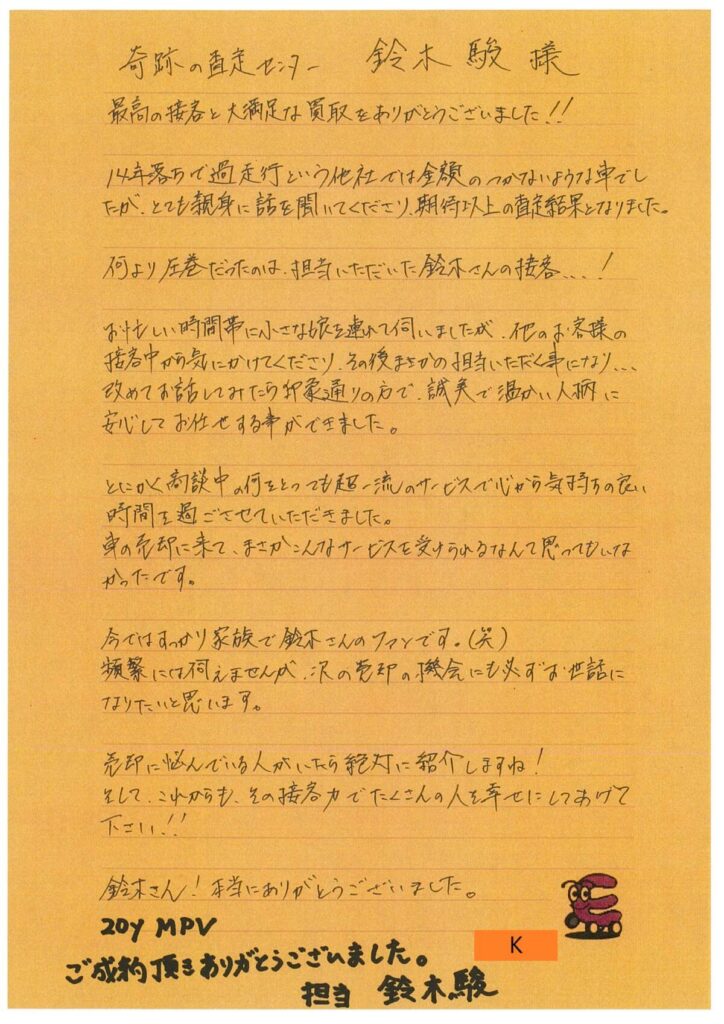 奇跡の査定センター 鈴木 駿 様
最高の接客と大満足な買取をありがとうございました!!
14年落ちで過走行という他社では金額のつかないような車でし
たが、とても親身に話を聞いてくださり、期待以上の査定結果となりました。
何より圧巻だったのは、担当いただいた鈴木さんの接客...!
お忙しい時間帯に小さな娘を連れて伺いましたが、他のお客様の
接客中から気にかけてくださり、その後まさかの担当いただく事になり...
改めてお話してみたら印象通りの方で、誠実で温かい人柄に
安心してお任せする事ができました。
とにかく商談中の何をとっても超一流のサービスで心から気持ちの良い
時間を過ごさせていただきました。
車の売却に来て、まさかこんなサービスを受けられるなんて思ってもいな
かったです。
今ではすっかり家族で鈴木さんのファンです。(笑)
頻繁には伺えませんが、次の売却の機会にも必ずお世話に
なりたいと思います。
売却に悩んでいる人がいたら絶対に紹介しますね!
そして、これからも、その接客力でたくさんの人を幸せにしてあげて
下さい!!
鈴木さん!本当にありがとうございました。
20y MPV
K
ご成約頂きありがとうございました。
担当 鈴木駿